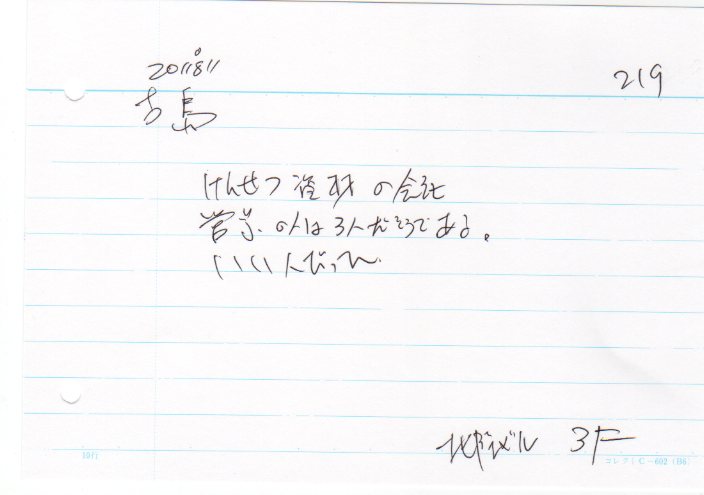 2011811
219
古島
けんせつ資材の会社
営業の人は3人だそうである。
いい人だった
ビル 3F
10行
コレクト C-602 (B6)